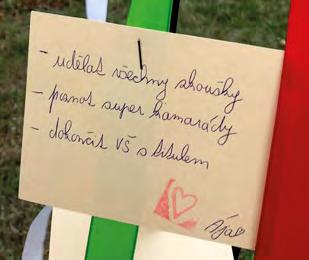 - udělat všechny zkoušky
- poznat super kamarády
- dokončit VŠ s titulem
Ája